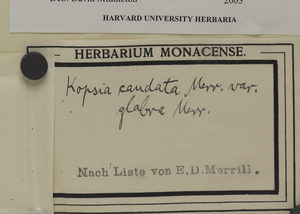 Det.: David Middleton 2005
HARVARD UNIVERSITY HERBARIA
HERBARIUM MONACENSE.
Kopsia caudata Merr. var.
glabra Merr.
Nach Liste von E.D.Merrill.